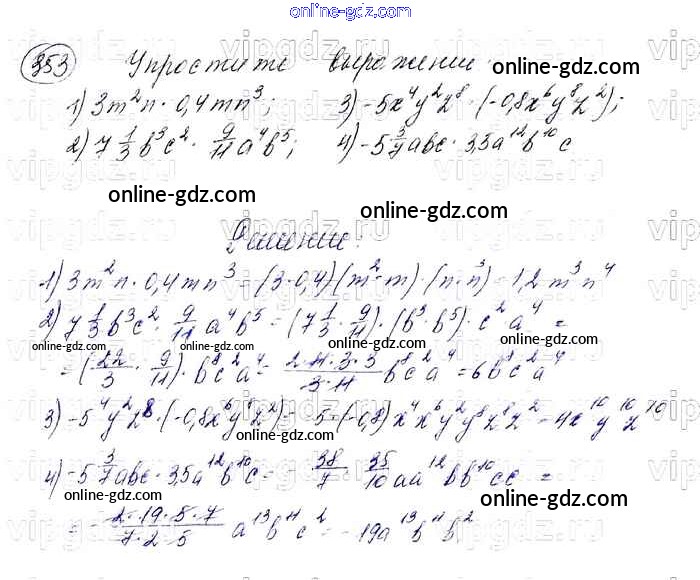 online-gdz.com
353 Упростите выражении.
1) 3m²n · 0,4mn³; 3) -5x⁴y²z⁸ · (-0,8x⁶y⁸z²);
2) 7 1/3 b³c² · 9/11 a⁴b⁵; 4) -5 3/7 abc · 3,5a¹²b¹⁰c
online-gdz.com
online-gdz.com
Решение:
1) 3m²n · 0,4mn³ = (3·0,4)(m²·m)·(n·n³) = 1,2m³n⁴
2) 7 1/3 b³c² · 9/11 a⁴b⁵ = (7 1/3 · 9/11)·(b³·b⁵)·c²a⁴ =
online-gdz.com
= (22/3 · 9/11)· b⁸c²a⁴ = 2·11·3·3/3·11 b⁸c²a⁴ = 6b⁸c²a⁴
3) -5⁴y²z⁸·(-0,8x⁶y⁸z²) = -5·(-0,8)x⁴x⁶y²y⁸z⁸z² = 4x¹⁰y¹⁰z¹⁰
online-gdz.com
online-gdz.com
4) -5 3/7 abc · 3,5a¹²b¹⁰c = - 38/7 · 35/10 aa¹²bb¹⁰cc =
online-gdz.com
online-gdz.com
= - 2·19·5·7/7·2·5 a¹³b¹¹c² = -19a¹³b¹¹b²
online-gdz.com